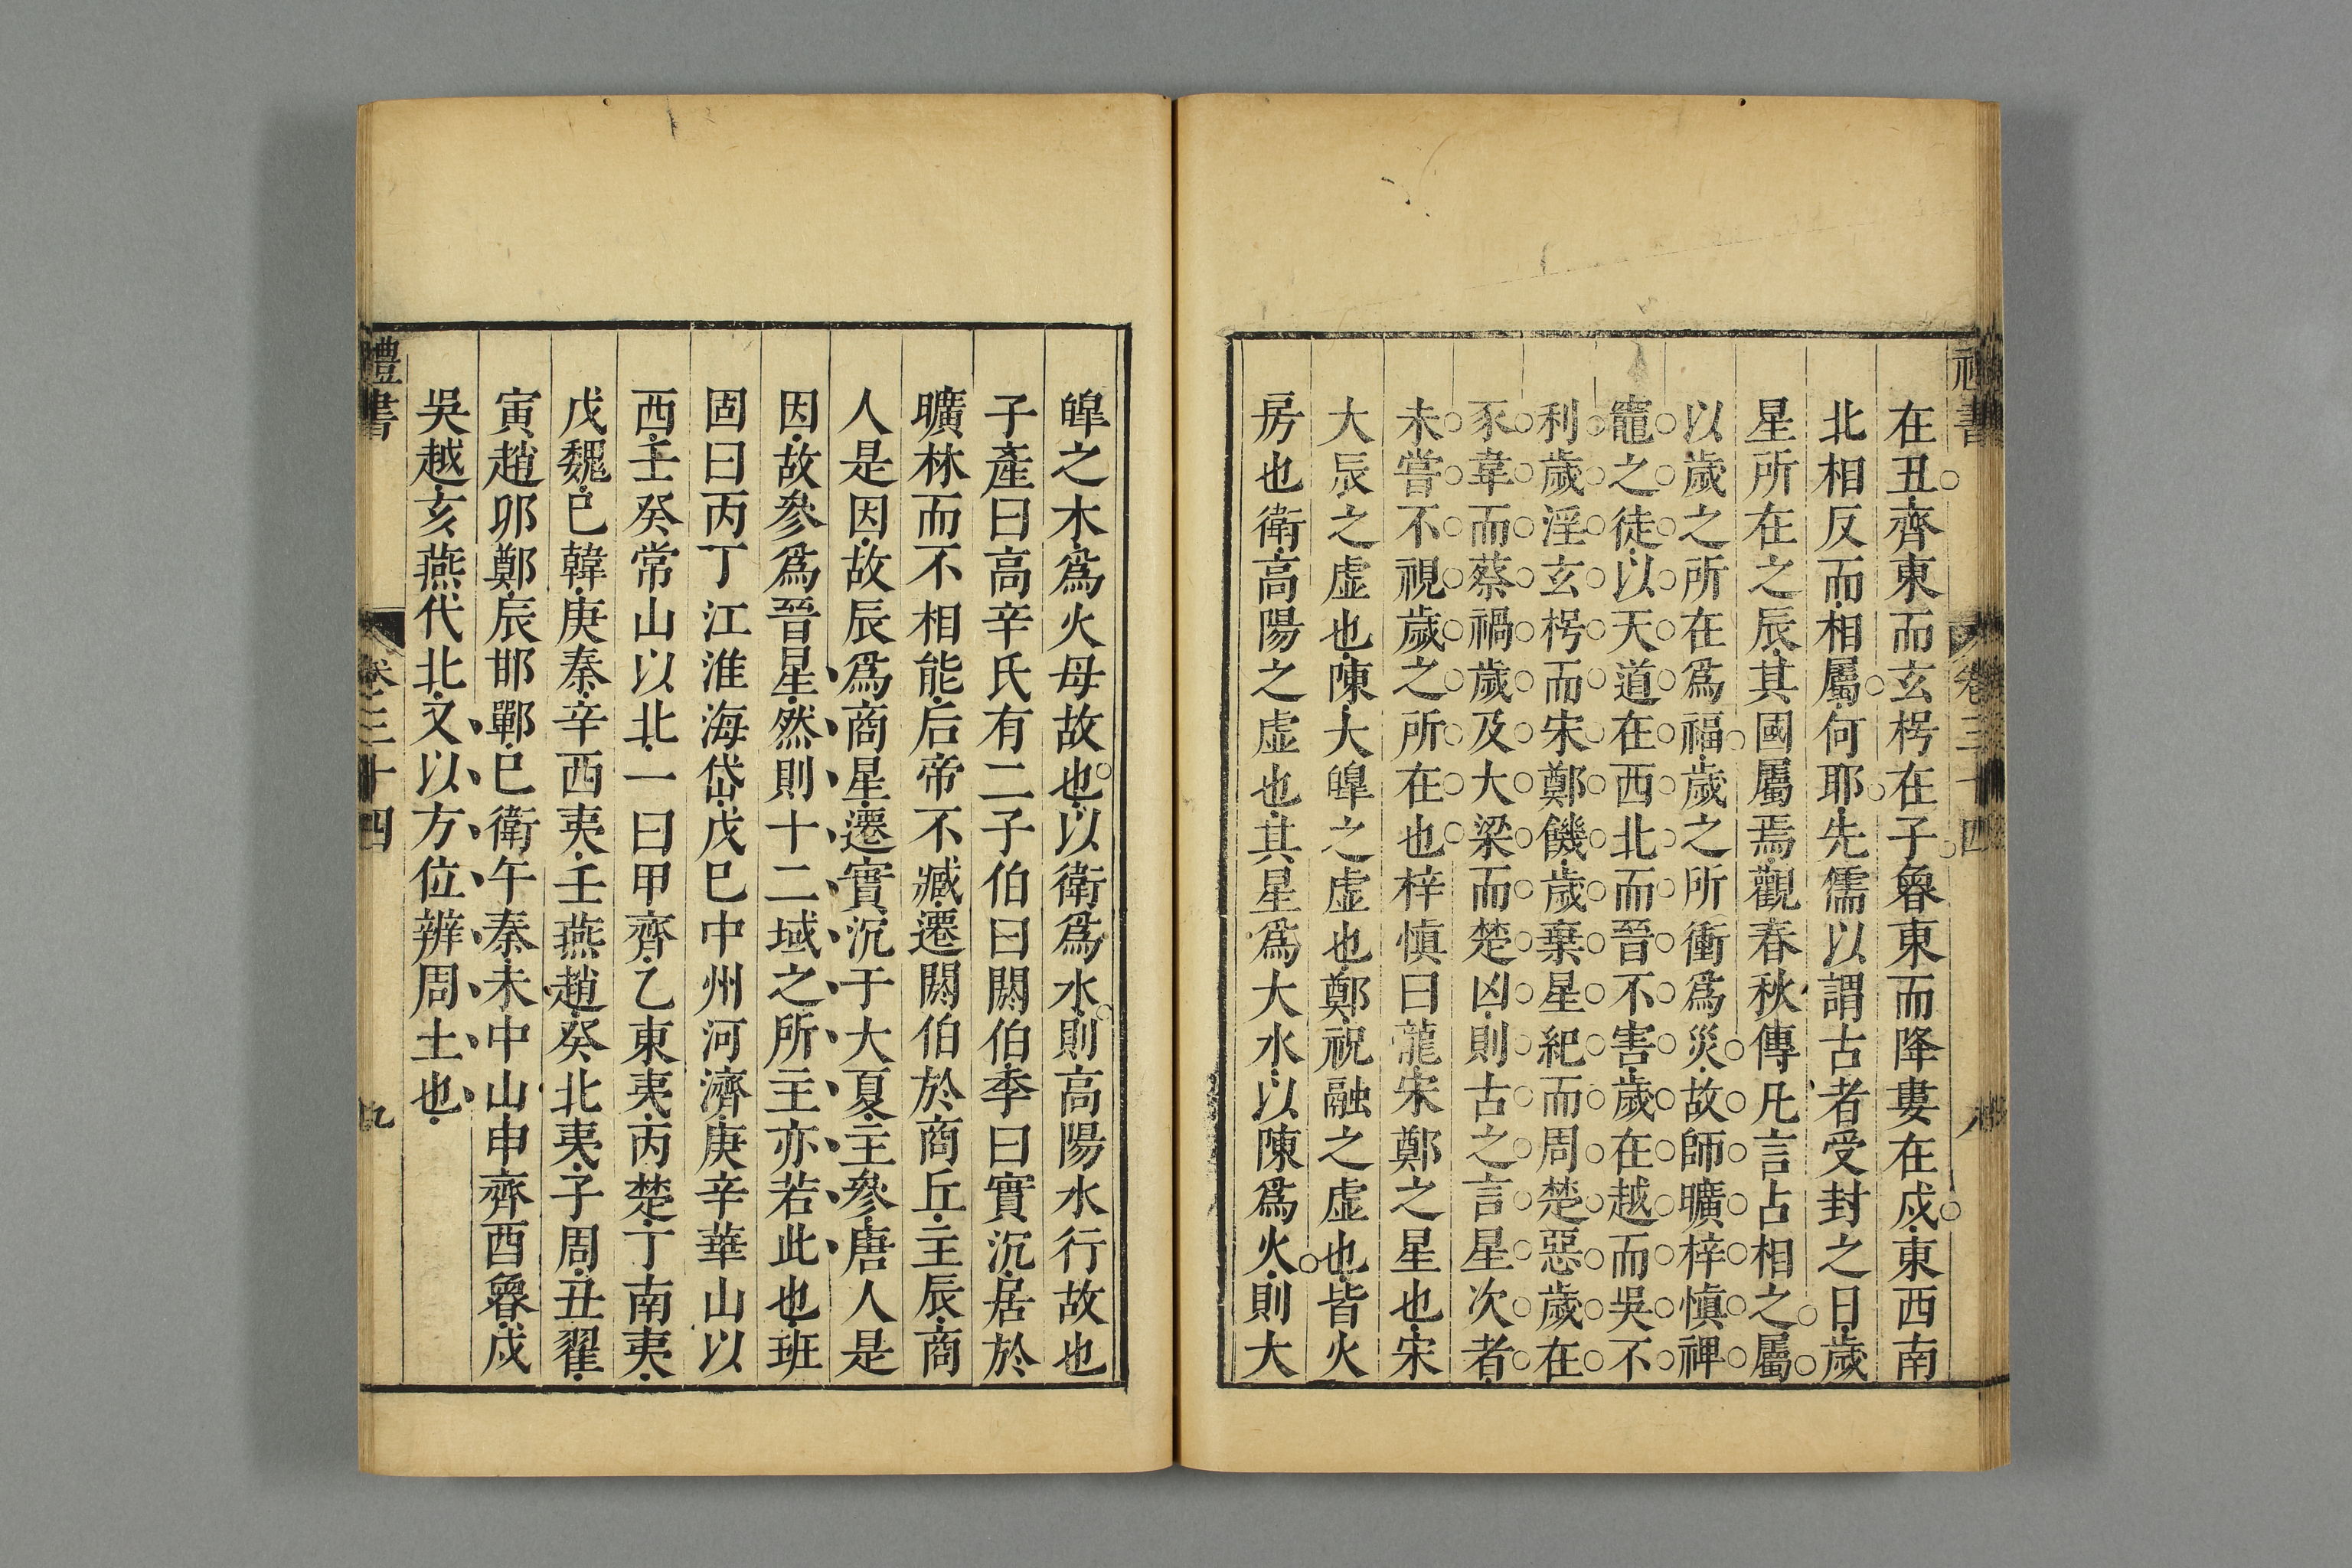 禮書 卷三十四
在丑齊東而玄枵在子魯東而降婁在戍東西南
北相反而相屬何耶先儒以謂古者受封之日歲
星所在之辰其國屬焉觀春秋傳凡言占相之屬
以歲之所在爲福歲之所衝爲災故師曠梓慎禆
竈之徒以天道在西北而晉不害歲在越而吳不
利歲淫玄枵而宋鄭饑歲棄星紀而周楚惡歲在
豕韋而蔡禍歲及大梁而楚凶則古之言星次者
未嘗不視歲之所在也梓慎曰龍宋鄭之星也宋
大辰之虛也陳大皡之虛也鄭祝融之虛也皆火
房也衛高陽之虛也其星爲大水以陳爲火則大
皡之木爲火母故也以衛爲水則高陽水行故也
子產曰高辛氏有二子伯曰閼伯季曰實沉居於
曠林而不相能后帝不臧遷閼伯於商丘主辰商
人是因故辰爲商星遷實沉于大夏主參唐人是
因故參爲晉星然則十二域之所主亦若此也班
固曰丙丁江淮海岱戊巳中州河濟庚辛華山以
西壬癸常山以北一曰甲齊乙東夷丙楚丁南夷
戊魏巳韓庚秦辛西夷壬燕趙癸北夷子周丑翟
寅趙卯鄭辰邯鄲巳衛午秦未中山申齊酉魯戌
吳越亥燕代北又以方位辨周土也
禮書 卷三十四 九